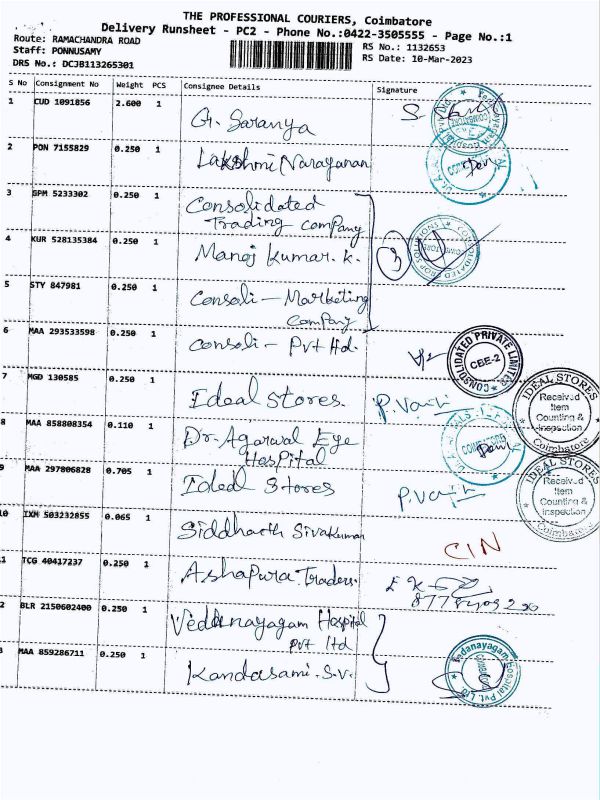 THE PROFESSIONAL COURIERS, Coimbatore
Delivery Runsheet - PC2 - Phone No.:0422-3505555 - Page No.:1
Route: RAMACHANDRA ROAD
RS No.: 1132653
Staff: PONNUSAMY
RS Date: 10-Mar-2023
DRS No.: DCJB113265301
S No Consignment No Weight PCS Consignee Details Signature
1 CUD 1091856 2.600 1 G. Saranya
2 PON 7155829 0.250 1 Lakshmi Narayanan
3 GPM 5233302 0.250 1 Consolidated
Trading company
4 KUR 528135384 0.250 1 Manoj Kumar. K. 3
5 STY 847981 0.250 1 Consoli - Marketing
Company
6 MAA 293533598 0.250 1 Consoli - Pvt ltd.
CONSOLIDATED PRIVATE LIMITED
CBE-2
7 MGD 130585 0.250 1 Ideal Stores. P.Vani
IDEAL STORES
Received
Item
Counting &
Inspection
Coimbatore
8 MAA 858808354 0.110 1 Dr-Agarwal Eye
Hospital
9 MAA 297806828 0.705 1 Ideal Stores P.Vani
IDEAL STORES
Received
Item
Counting &
Inspection
Coimbatore
10 IXM 503232855 0.065 1 Siddharth Sivakumar CIN
1 TCG 40417237 0.250 1 Ashapura Traders.
2 BLR 2150602400 0.250 1 Vedanayagam Hospital
Pvt ltd
3 MAA 859286711 0.250 1 Kandasami. S.V.
Vedanayagam Hospital Pvt. Ltd